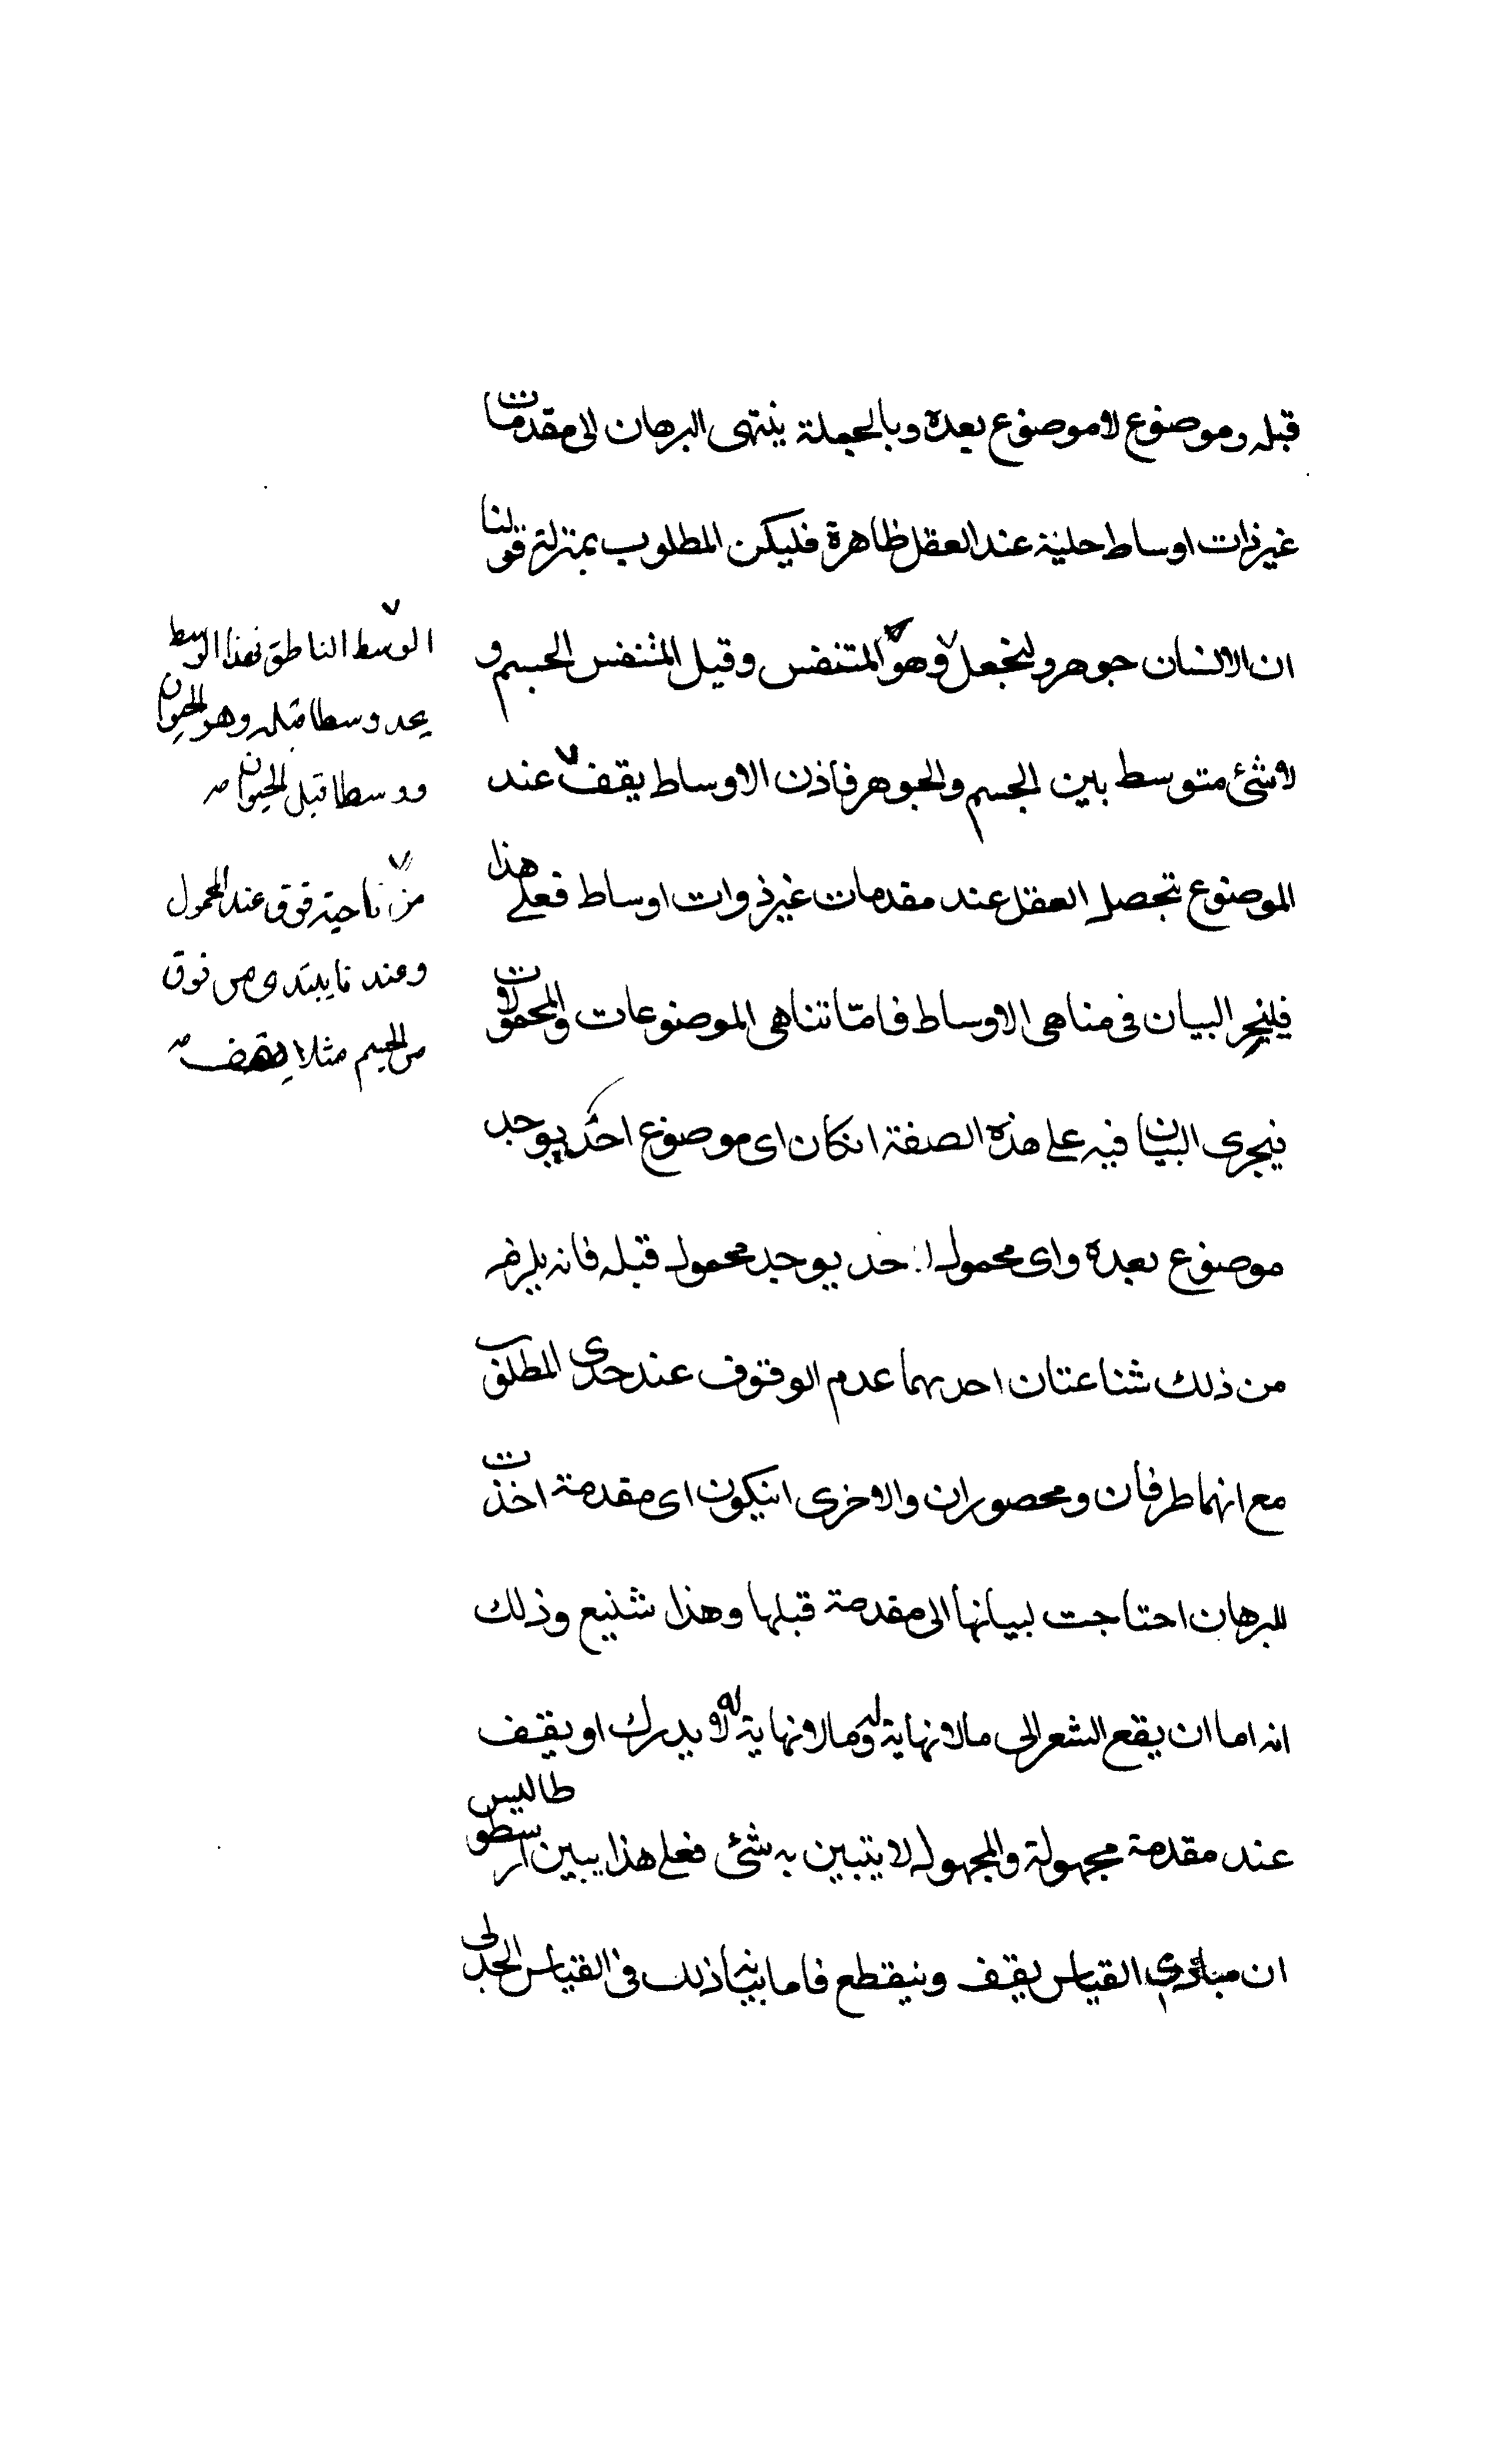 قبله وموضوع لا موضوع بعده وبالجملة ينتهى البرهان الى مقدمات
غير ذات اوساط جلية عند العقل ظاهرة فليكن المطلوب بمنزلة قولنا
ان الانسان جوهر ولنجعل وهو المتنفس وقبل المتنفس الجسم و
لا شئ متوسط بين الجسم والجوهر فاذن الاوساط يقف عند
الموضوع تحصل العقل عند مقدمات غير ذوات اوساط فعلى هذا
فليجر البيان فى مناهى الاوساط فامّا تناهى الموضوعات والمحمولات
فيجرى البيان فيه على هذه الصفة انكان اى موضوع اخذ يوجد
موضوع بعده واى محمول اخذ يوجد محمول قبله فانه يلزم
من ذلك شناعتان احديهما عدم الوقوف عند حدى المطلوب
مع انهما طرفان ومحصوران والاخرى انيكون اى مقدمة اخذت
للبرهان احتاجت لبيانها الى مقدمة قبلها وهذا شنيع وذلك
انه اما ان يقع الشعر الى ما لا نهاية له وما لا نهاية له لا يدرك او يقف
عند مقدمة مجهولة والمجهول لا يتبين به شئ فعلى هذا يبين ارسطوطاليس
ان مبادى القياس يقف وينقطع فاما بيانه ذلك فى القياس الجدلى
الوسط الناطق فهذا الوسط
يجد وسطا قبله وهو الحيوان
ووسطا قبل الحيوان
من ناحية فوق عند المحمول
وعند ما يبتدى من فوق
من الجسم مثلا يقف